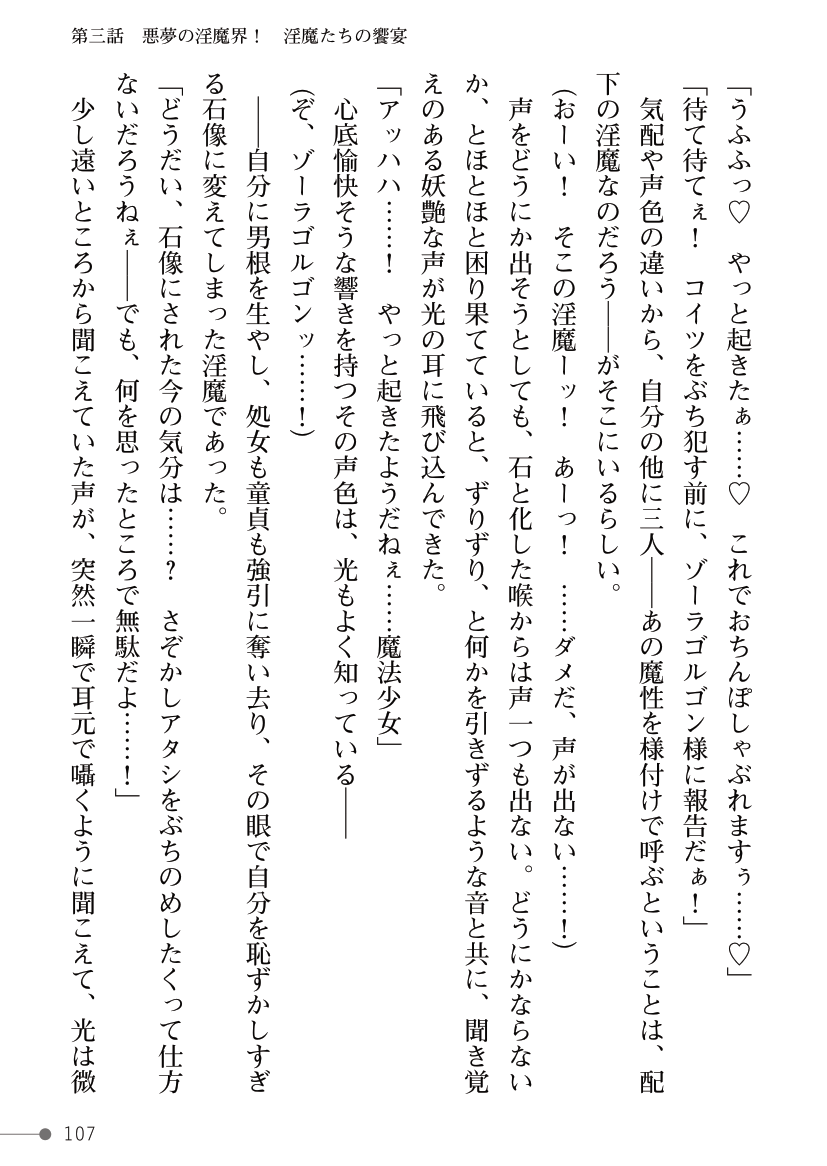 第三話　悪夢の淫魔界！　淫魔たちの饗宴
「うふふっ♡　やっと起きたぁ……♡　これでおちんぽしゃぶれますぅ……♡」
「待て待てぇ！　コイツをぶち犯す前に、ゾーラゴルゴン様に報告だぁ！」
　気配や声色の違いから、自分の他に三人――あの魔性を様付けで呼ぶということは、配
下の淫魔なのだろう――がそこにいるらしい。
（おーい！　そこの淫魔ーッ！　あーっ！　……ダメだ、声が出ない……！）
　声をどうにか出そうとしても、石と化した喉からは声一つも出ない。どうにかならない
か、とほとほと困り果てていると、ずりずり、と何かを引きずるような音と共に、聞き覚
えのある妖艶な声が光の耳に飛び込んできた。
「アッハハ……！　やっと起きたようだねぇ……魔法少女」
　心底愉快そうな響きを持つその声色は、光もよく知っている――
（ぞ、ゾーラゴルゴンッ……！）
　――自分に男根を生やし、処女も童貞も強引に奪い去り、その眼で自分を恥ずかしすぎ
る石像に変えてしまった淫魔であった。
「どうだい、石像にされた今の気分は……？　さぞかしアタシをぶちのめしたくって仕方
ないだろうねぇ――でも、何を思ったところで無駄だよ……！」
　少し遠いところから聞こえていた声が、突然一瞬で耳元で囁くように聞こえて、光は微
107